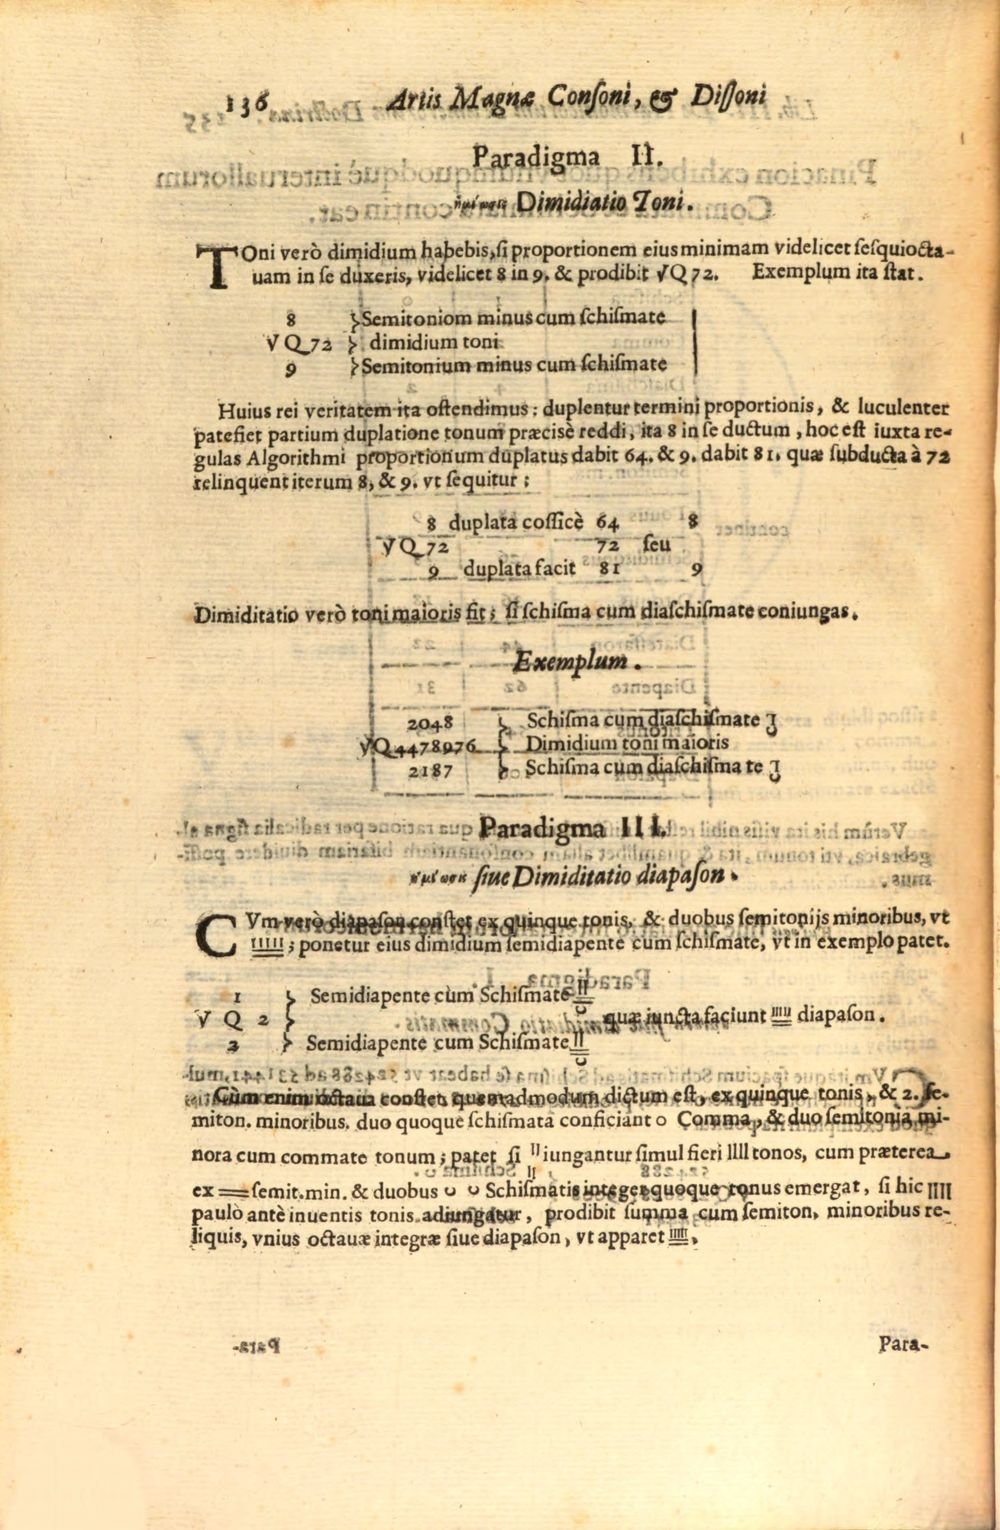 136 Artis Magnæ Conſoni, & Diſſoni
Paradigma II.
Dimidiatio Toni.
TOni verò dimidium habebis, ſi proportionem eius minimam videlicet ſeſquiocta-
uam in se duxeris, videlicet 8 in 9. & prodibit √Q 72. Exemplum ita ſtat.
8 }Semitoniom minus cum ſchiſmate
√Q 72 } dimidium toni
9 }Semitonium minus cum ſchiſmate
Huius rei veritatem ita oſtendimus: duplentur termini proportionis, & luculenter
patefiet partium duplatione tonum præcisè reddi, ita 8 in ſe ductum, hoc eſt iuxta re-
gulas Algorithmi proportionum duplatus dabit 64. & 9. dabit 81. quæ ſubducta à 72
relinquent iterum 8, & 9. vt ſequitur:
8 duplata coſſicè 64 8
√Q 72 72 ſeu
9 duplata facit 81 9
Dimiditatio verò toni maioris fit; ſi ſchiſma cum diaſchiſmate coniungas.
Exemplum.
2048 } Schiſma cum diaſchiſmate
√Q 4478976 } Dimidium toni maioris
2187 } Schiſma cum diaſchiſma te
Paradigma III.
ſiue Dimiditatio diapaſon.
CVm verò diapaſon conſtet ex quinque tonis, & duobus ſemitonijs minoribus, vt
; ponetur eius dimidium ſemidiapente cum ſchiſmate, vt in exemplo patet.
1 } Semidiapente cùm Schiſmate
√ Q 2 } quæ iuncta faciunt diapaſon.
2 } Semidiapente cum Schiſmate
Cùm enim octaua conſtet, quemadmodum dictum eſt, ex quinque tonis, & 2. ſe-
miton. minoribus, duo quoque ſchiſmata conficiant o Comma, & duo ſemitonia mi-
nora cum commate tonum; patet ſi || iungantur ſimul fieri |||| tonos, cum præterea
ex ═ ſemit. min. & duobus ᴗ ᴗ Schiſmatis integer quoque tonus emergat, ſi hic ||||
paulò antè inuentis tonis adiungatur, prodibit ſumma cum ſemiton, minoribus re-
liquis, vnius octauæ integræ ſiue diapaſon, vt apparet
Para-